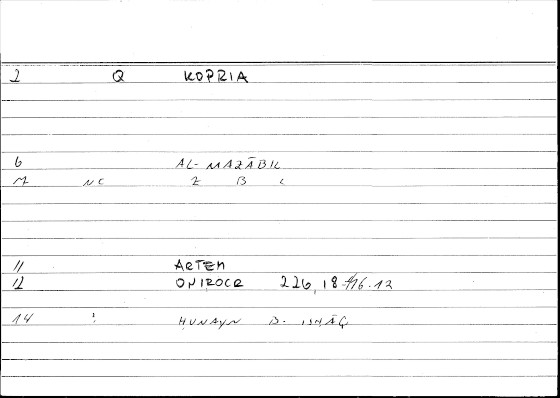 2 Q KOPRIA
6 AL-MAZĀBIL
M NC Z B L
11 ARTEM
12 ONIROCR 226,18 / 16.12
14 ! ḤUNAYN B. ISḤĀQ